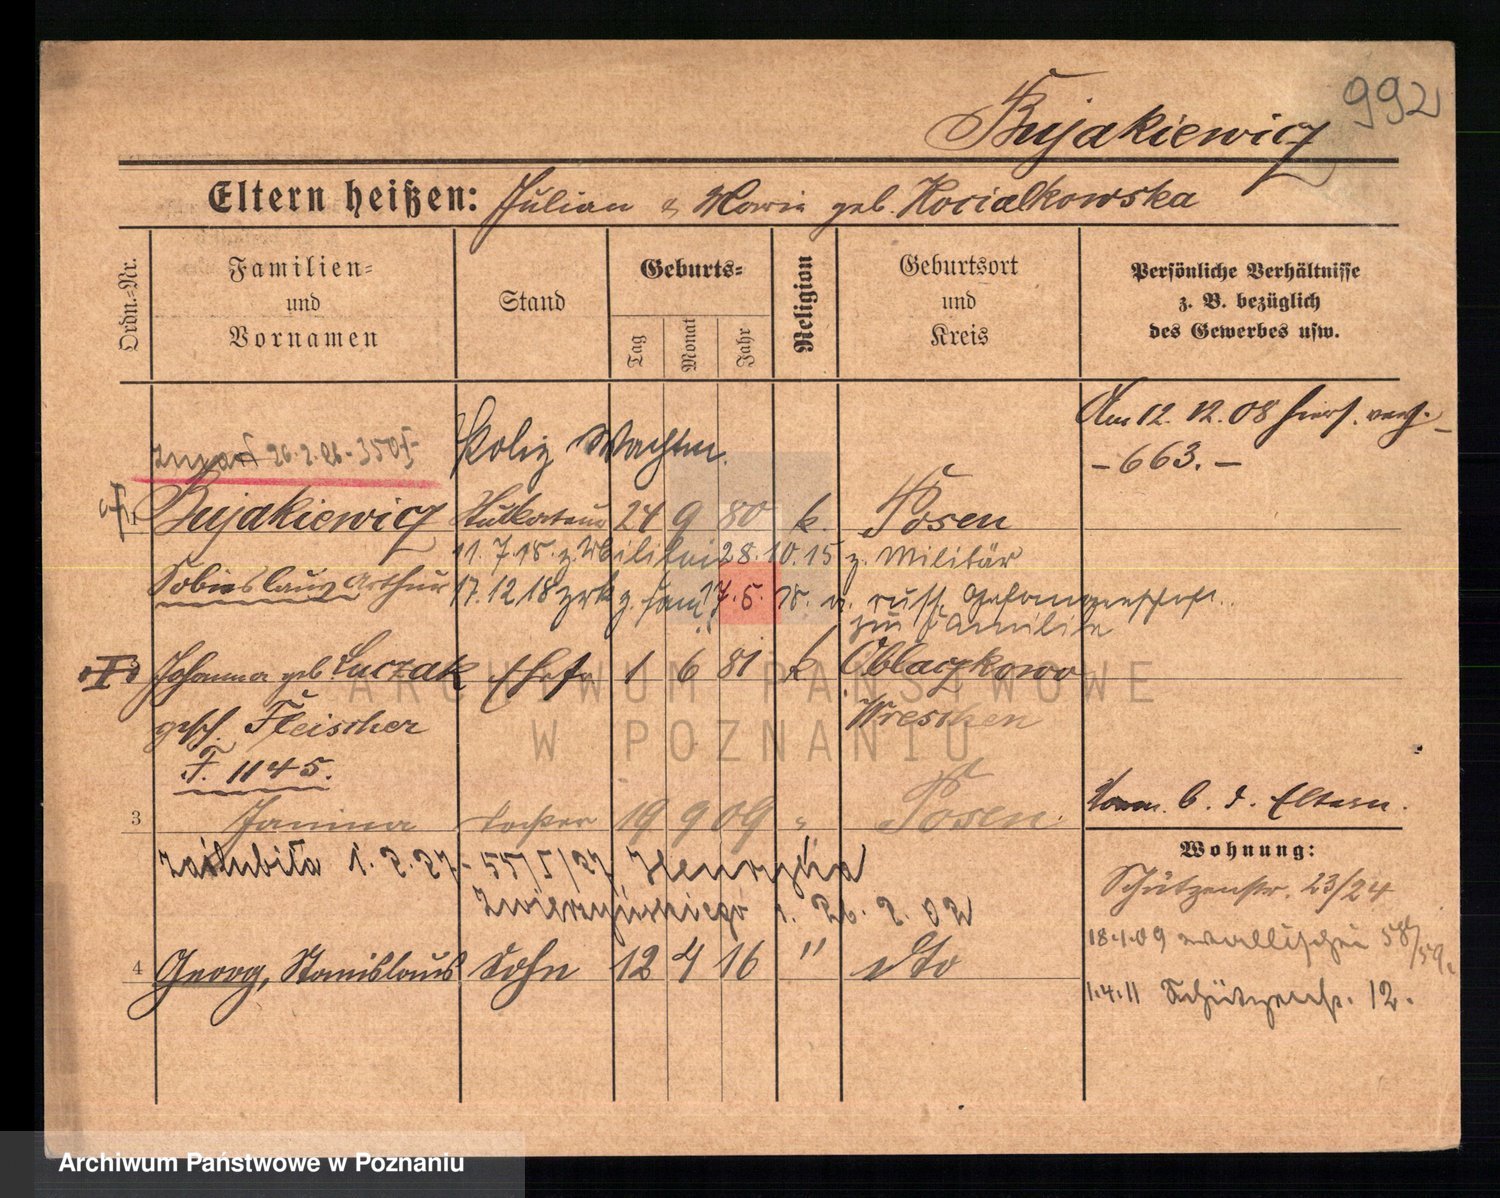 992
Bujakiewicz
Eltern heißen: Julian & Maria geb. Kocialkowska
Ordn.-Nr.
Familien- und Vornamen
Stand
Geburts-
Tag
Monat
Jahr
Religion
Geburtsort und Kreis
Persönliche Verhältnisse z. B. bezüglich des Gewerbes usw.
Am 12. 12. 08 hiers. verh.
- 663. -
zmarł 26.2.26 - 350/-
Poliz Wachtm.
1 Bujakiewicz 24 9 80 k. Posen
11.7.15. z. Militär 28.10.15 z. Militär
Sobieslaus Arthur 17.12.18 zrk z. Fam. 7.5.18. a. russ. Gefangenschaft
zur Familie
Johanna geb Luczak Ehefr 1 6 81 k Oblaczkowo
gesch. Fleischer Wreschen
F. 1145.
3 Janina Tochter 19 9 09 " Posen.
Vorm. b. d. Eltern.
Wohnung:
zaślubiła 1. 2. 27 - 55/I/27 Henryka
Schützenstr. 23/24
Zwierzyńskiego
18.1.09 Wallischei 58/59.
4 Georg, Stanislaus Sohn 12 4 16 " dto
1.4.11 Schützenstr. 12.
ARCHIWUM PAŃSTWOWE
W POZNANIU
Archiwum Państwowe w Poznaniu